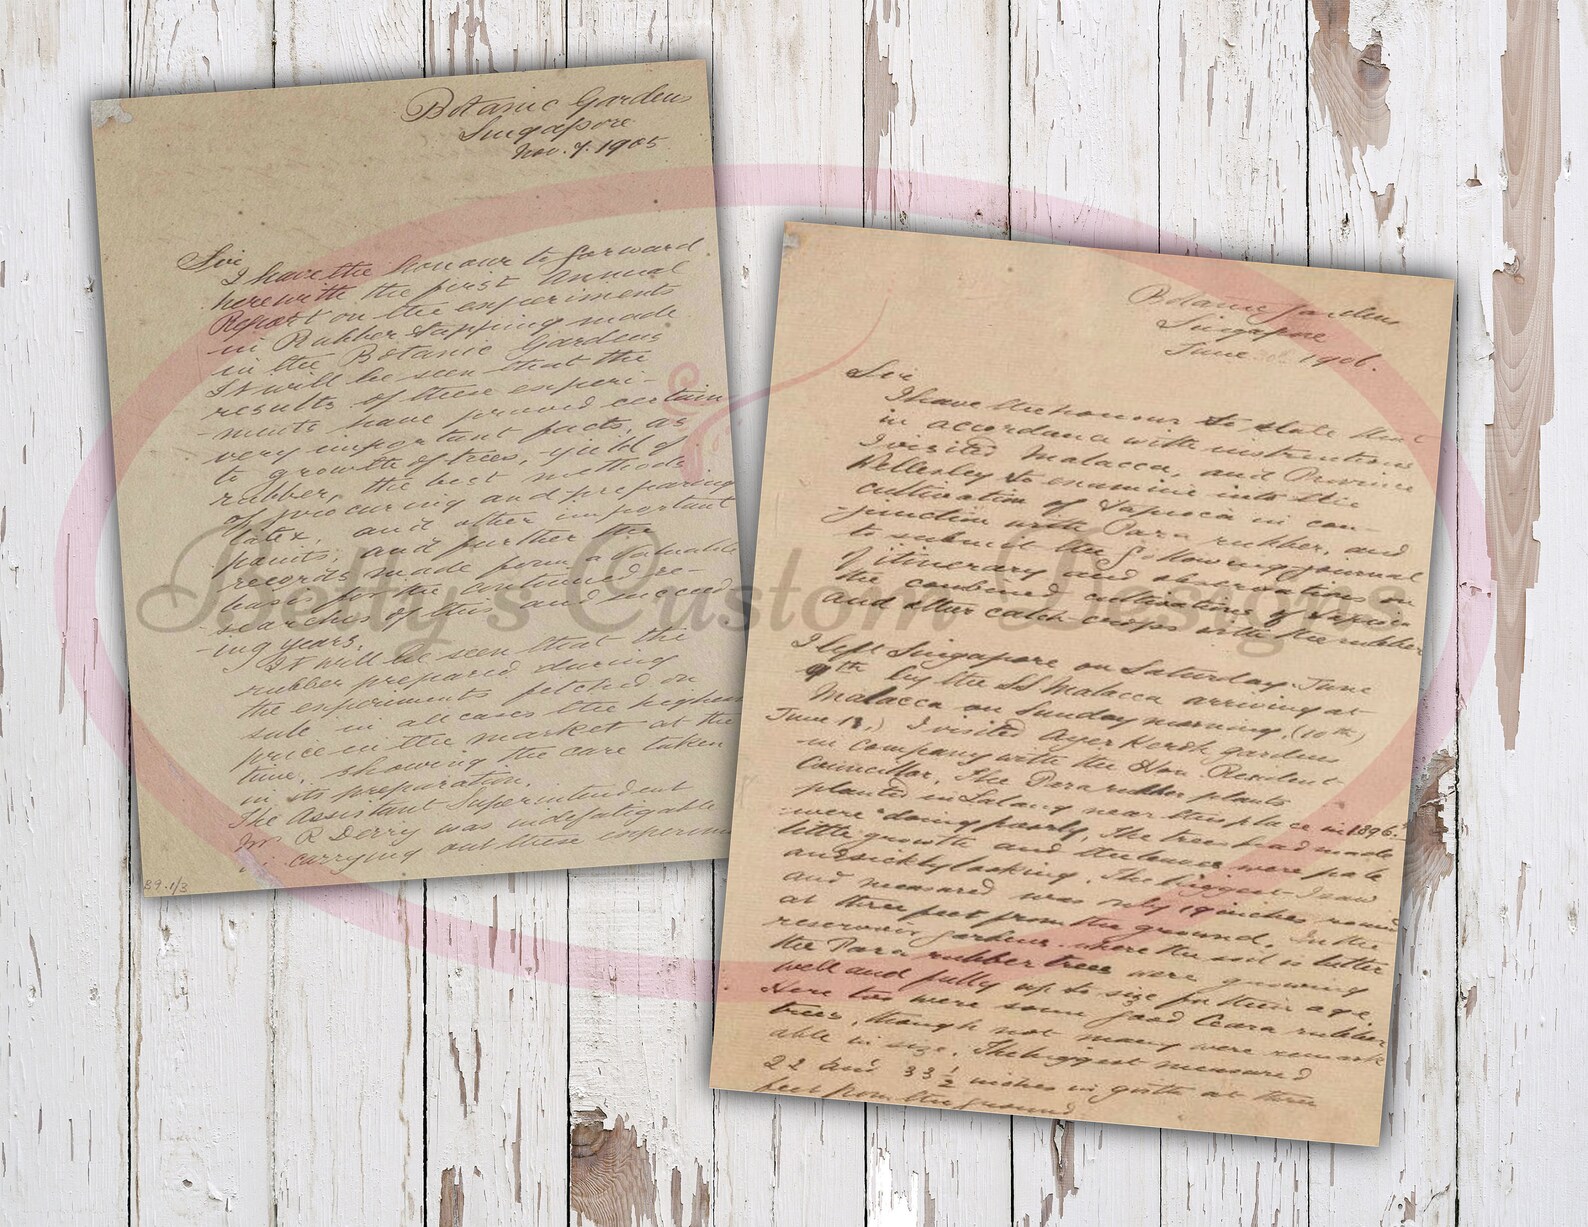 Botanic Gardens
Singapore
Nov. 7. 1905
Sir
I have the honour to forward
herewith the first Annual
Report on the experiments
in Rubber tapping made
in the Botanic Gardens
It will be seen that the
results of these experi-
-ments have proved certain
very important facts, as
to growth of trees, yield of
rubber, the best methods
of procuring and preparing
latex, and other important
points, and further the
records made form a valuable
basis for the continued re-
-searches of this and succeed
-ing years.
It will be seen that the
rubber prepared during
the experiments fetched on
sale in all cases the highest
price in the market at the
time, showing the care taken
in its preparation.
The Assistant Superintendent
Mr R Derry was indefatigable
in carrying out these experim
89.1/3
Botanic Gardens
Singapore
June 1906.
Sir
I have the honour to state that
in accordance with instructions
I visited Malacca, and Province
Wellesley to examine into the
cultivation of Tapioca in con-
-junction with Para rubber, and
to submit the following journal
of itinerary and observations on
the combined cultivations of Tapioca
and other catch-crops with the rubber
I left Singapore on Saturday June
9th by the SS Malacca arriving at
Malacca on Sunday morning, (10th)
June 11,) I visited Ayer Keroh gardens
in company with the Hon. Resident
Councillor. The Para rubber plants
planted in Lalang near this place in 1896
were doing poorly, the trees had made
little growth and the leaves were pale
and sickly looking. The biggest I saw
and measured was only 19 inches round
at three feet from the ground. In the
reservoir gardens where the soil is better
the Para rubber trees were growing
well and fully up to size for their age
Here too were some good Ceara rubber
trees, though not many were remark
able in size. The biggest measured
22 and 33 1/2 inches in girth at three
feet from the ground
Betty's Custom Designs